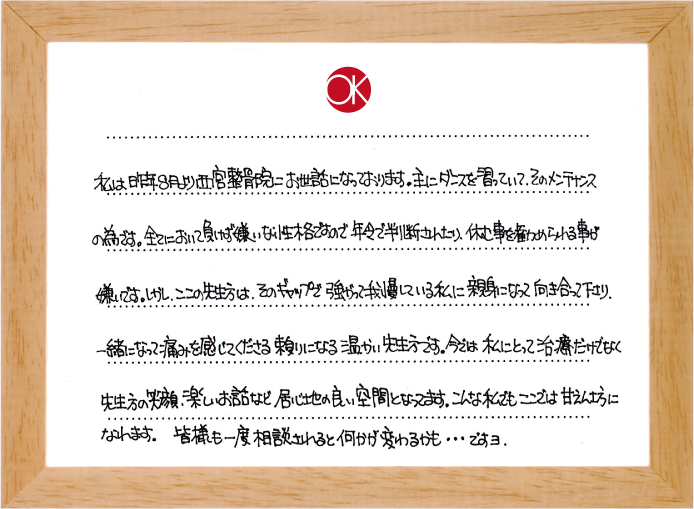 OK
私は昨年8月より西宮整骨院にお世話になっております。主にダンスを習っていて、そのメンテナンス
の為です。全てにおいて負けず嫌いな性格ですので年令で判断されたり、休む事を勧められる事が
嫌いです。しかし、ここの先生方は、そのギャップで強がって我慢している私に親身になって向き合って下さり、
一緒になって痛みを感じてくださる頼りになる温かい先生方です。今では私にとって治療だけでなく
先生方の笑顔、楽しいお話など居心地の良い空間となってます。こんな私でもここでは甘えん坊に
なれます。 皆様も一度相談されると何かが変わるかも・・・ですヨ.